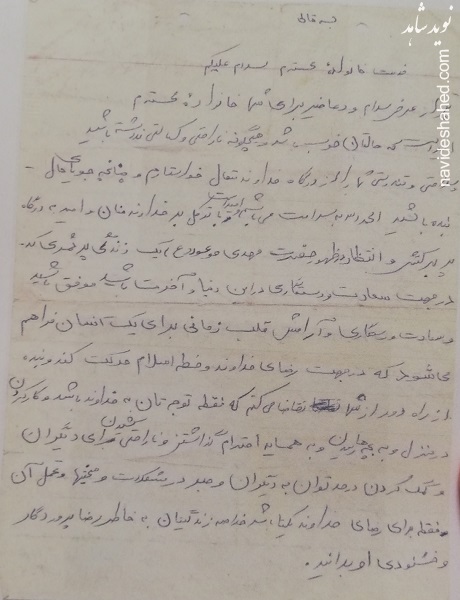 بسمه تعالی
نوید شاهد
navideshahed.com
خدمت خانواده محترم سلام علیکم
از عرض سلام و دعا خیر برای شما خانواده محترم
است که حالتان خوب باشد و هیچگونه ناراحتی و کسالتی نداشته باشید
و تندرستی شما را از درگاه خداوند متعال خواستارم و چنانچه جویای حال
بنده باشید الحمدلله سلامت می باشم با توکل بر خداوند منان و امید به درگاه
و انتظار ظهور حضرت مهدی موعود (عج) یک زندگی پر
در جهت سعادت و رستگاری در این دنیا و آخرت باشید موفق باشید
و سعادت و رستگاری و آرامش قلب زمانی برای یک انسان فراهم
می شود که در جهت رضای خداوند و خط اسلام حرکت کند و بنده
از راه دور از شما تقاضا می کنم که فقط توجه تان به خداوند باشد و کار کردن
در منزل و به بچه ها رسیدن و به همسایه احترام گذاشتن و ناراحتی برای دیگران
و کمک کردن در حد توان به دیگران و صبر در مشکلات و سختیها و تحمل آن
فقط برای رضای خداوند یکتا باشد خلاصه زندگیتان به خاطر رضا پروردگار
و خشنودی او بدانید.